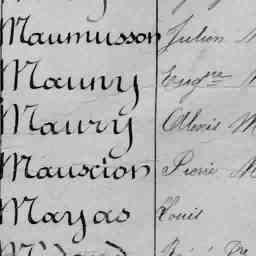 Maumusson Julien
Mauny Eug^ne
Maury Alexis M
Mauxion Pierre M
Mayas Louis